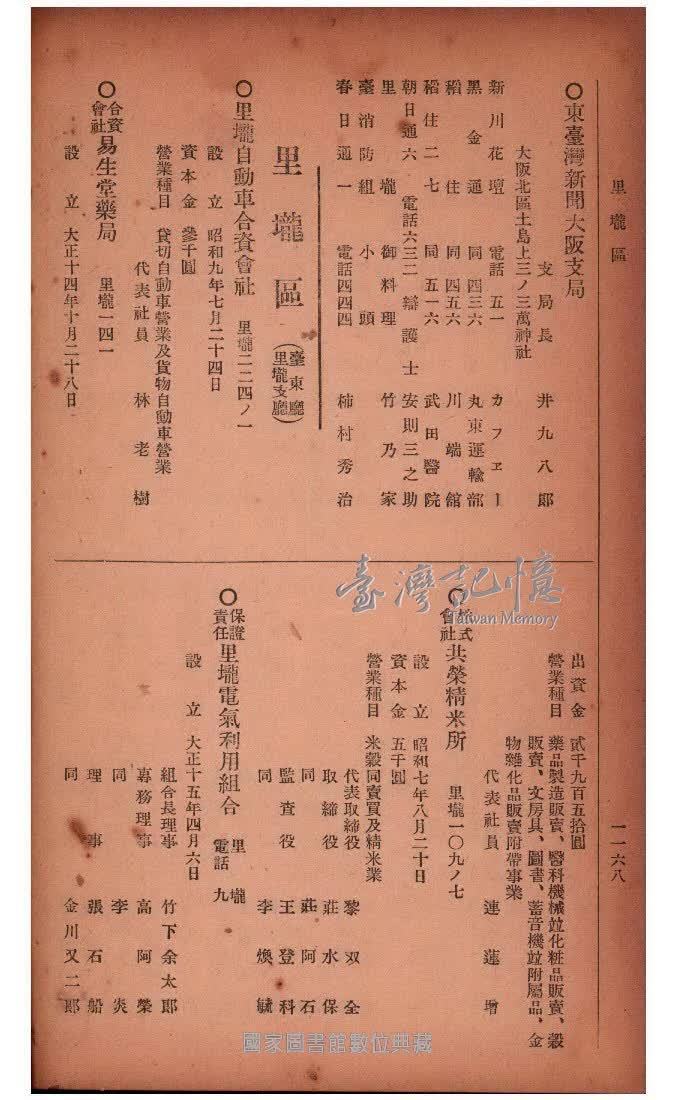 里壠區
一一六八
○東臺灣新聞大阪支局
大阪北區土島上三ノ三萬神社
支局長 井九八郎
新川花壇 電話五一 カフェー
黑金通 同四三六 丸東運輸部
稻住 同四五六 川端館
稻住二七 同五一六 武田醫院
朝日通六 電話六三二 辯護士 安則三之助
里壠 御料理 竹乃家
臺消防組 小頭
春日通一 電話四四四 柿村秀治
里壠區(臺東廳里壠支廳)
○里壠自動車合資會社 里壠二二四ノ一
設立 昭和九年七月二十四日
資本金 參千圓
營業種目 貸切自動車營業及貨物自動車營業
代表社員 林老樹
○合資會社易生堂藥局 里壠一四一
設立 大正十四年十月二十八日
出資金 貳千九百五拾圓
營業種目 藥品製造販賣、醫科機械竝化粧品販賣、穀
販賣、文房具、圖書、蓄音機竝附屬品、金
物雜化品販賣附帶事業
代表社員 連蓮增
○株式會社共榮精米所 里壠一〇九ノ七
設立 昭和七年八月二十日
資本金 五千圓
營業種目 米穀同賣買及精米業
代表取締役 黎双全
取締役 莊水保
同 莊阿石
監査役 王登科
同 李煥毓
○保證責任里壠電氣利用組合 里壠 電話九
設立 大正十五年四月六日
組合長理事 竹下余太郎
專務理事 高阿榮
同 李炎
理事 張石船
同 金川又二郎
臺灣記憶
Taiwan Memory
國家圖書館數位典藏